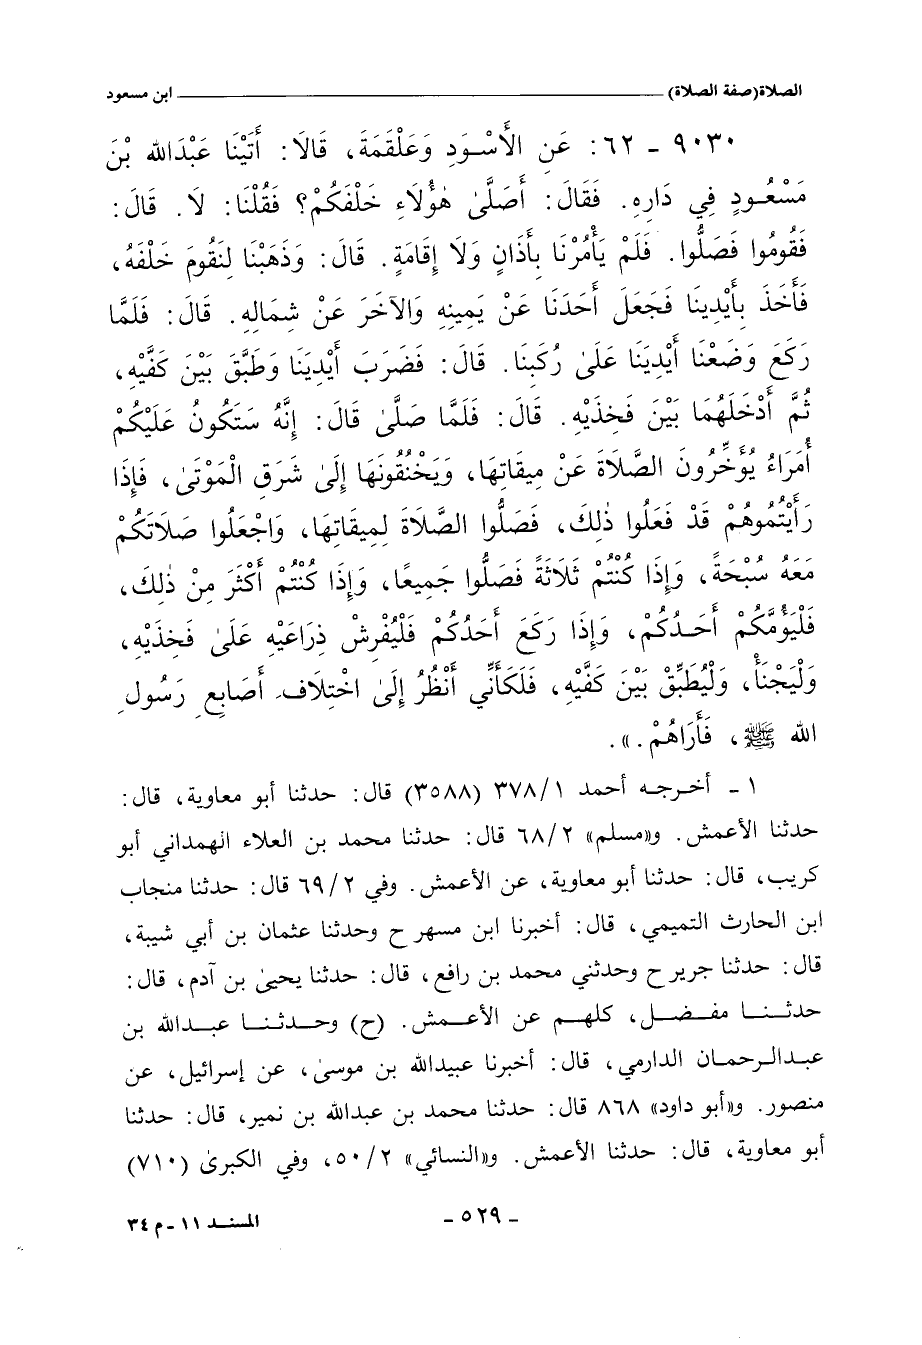 الصلاة(صفة الصلاة) ــــــــــــــــــــــــــــــ ابن مسعود
٩٠٣٠ - ٦٢: عَنِ الأَسْوَدِ وَعَلْقَمَةَ، قَالَا: أَتَيْنَا عَبْدَالله بْنَ
مَسْعُودٍ فِي دَارِهِ. فَقَالَ: أَصَلَّىٰ هٰؤُلَاءِ خَلْفَكُمْ؟ فَقُلْنَا: لَا. قَالَ:
فَقُومُوا فَصَلُّوا. فَلَمْ يَأْمُرْنَا بِأَذَانٍ وَلَا إِقَامَةٍ. قَالَ: وَذَهَبْنَا لِنَقُومَ خَلْفَهُ،
فَأَخَذَ بِأَيْدِينَا فَجَعَلَ أَحَدَنَا عَنْ يَمِينِهِ وَالآخَرَ عَنْ شِمَالِهِ. قَالَ: فَلَمَّا
رَكَعَ وَضَعْنَا أَيْدِيَنَا عَلَىٰ رُكَبِنَا. قَالَ: فَضَرَبَ أَيْدِيَنَا وَطَبَّقَ بَيْنَ كَفَّيْهِ،
ثُمَّ أَدْخَلَهُمَا بَيْنَ فَخِذَيْهِ. قَالَ: فَلَمَّا صَلَّىٰ قَالَ: إِنَّهُ سَتَكُونُ عَلَيْكُمْ
أُمَرَاءُ يُؤَخِّرُونَ الصَّلَاةَ عَنْ مِيقَاتِهَا، وَيَخْنُقُونَهَا إِلَىٰ شَرَقِ الْمَوْتَىٰ، فَإِذَا
رَأَيْتُمُوهُمْ قَدْ فَعَلُوا ذٰلِكَ، فَصَلُّوا الصَّلَاةَ لِمِيقَاتِهَا، وَاجْعَلُوا صَلَاتَكُمْ
مَعَهُ سُبْحَةً، وَإِذَا كُنْتُمْ ثَلَاثَةً فَصَلُّوا جَمِيعًا، وَإِذَا كُنْتُمْ أَكْثَرَ مِنْ ذٰلِكَ،
فَلْيَؤُمَّكُمْ أَحَدُكُمْ، وَإِذَا رَكَعَ أَحَدُكُمْ فَلْيُفْرِشْ ذِرَاعَيْهِ عَلَىٰ فَخِذَيْهِ،
وَلْيَجْنَأْ، وَلْيُطَبِّقْ بَيْنَ كَفَّيْهِ، فَلَكَأَنِّي أَنْظُرُ إِلَىٰ اخْتِلَافِ أَصَابِعِ رَسُولِ
الله ﷺ، فَأَرَاهُمْ.».
١ - أخرجه أحمد ٣٧٨/١ (٣٥٨٨) قال: حدثنا أبو معاوية، قال:
حدثنا الأعمش. و«مسلم» ٦٨/٢ قال: حدثنا محمد بن العلاء الهمداني أبو
كريب، قال: حدثنا أبو معاوية، عن الأعمش. وفي ٦٩/٢ قال: حدثنا منجاب
ابن الحارث التميمي، قال: أخبرنا ابن مسهر ح وحدثنا عثمان بن أبي شيبة،
قال: حدثنا جرير ح وحدثني محمد بن رافع، قال: حدثنا يحيىٰ بن آدم، قال:
حدثنا مفضل، كلهم عن الأعمش. (ح) وحدثنا عبدالله بن
عبدالرحمان الدارمي، قال: أخبرنا عبيدالله بن موسىٰ، عن إسرائيل، عن
منصور. و«أبو داود» ٨٦٨ قال: حدثنا محمد بن عبدالله بن نمير، قال: حدثنا
أبو معاوية، قال: حدثنا الأعمش. و«النسائي» ٥٠/٢، وفي الكبرىٰ (٧١٠)
- ٥٢٩ -
المسند ١١ - م ٣٤